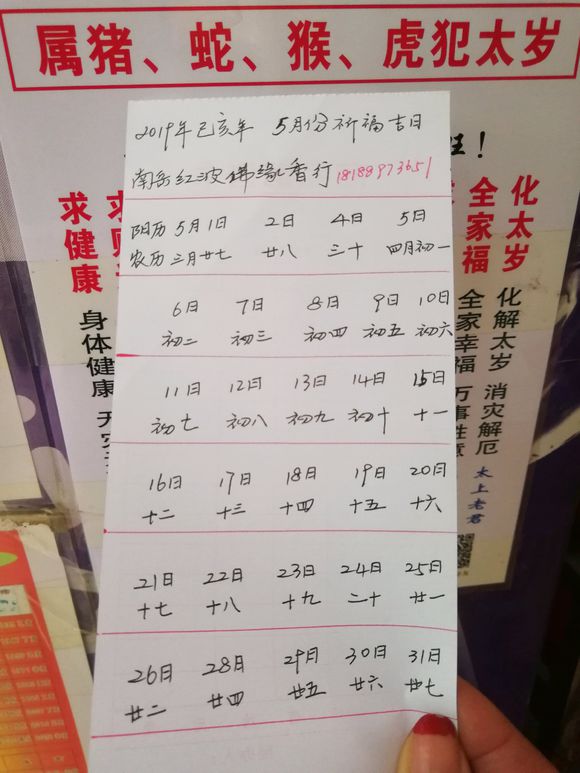 属猪、蛇、猴、虎犯太岁
2019年己亥年 5月份祈福吉日
南岳红波佛缘香行 18188973651
阳历 5月1日 2日 4日 5日
农历 三月廿七 廿八 三十 四月初一
6日 7日 8日 9日 10日
初二 初三 初四 初五 初六
11日 12日 13日 14日 15日
初七 初八 初九 初十 十一
16日 17日 18日 19日 20日
十二 十三 十四 十五 十六
21日 22日 23日 24日 25日
十七 十八 十九 二十 廿一
26日 28日 29日 30日 31日
廿二 廿四 廿五 廿六 廿七
旺！
求健康
身体健康
化太岁
全家福
化解太岁 消灾解厄
全家幸福 万事胜意
太上老君